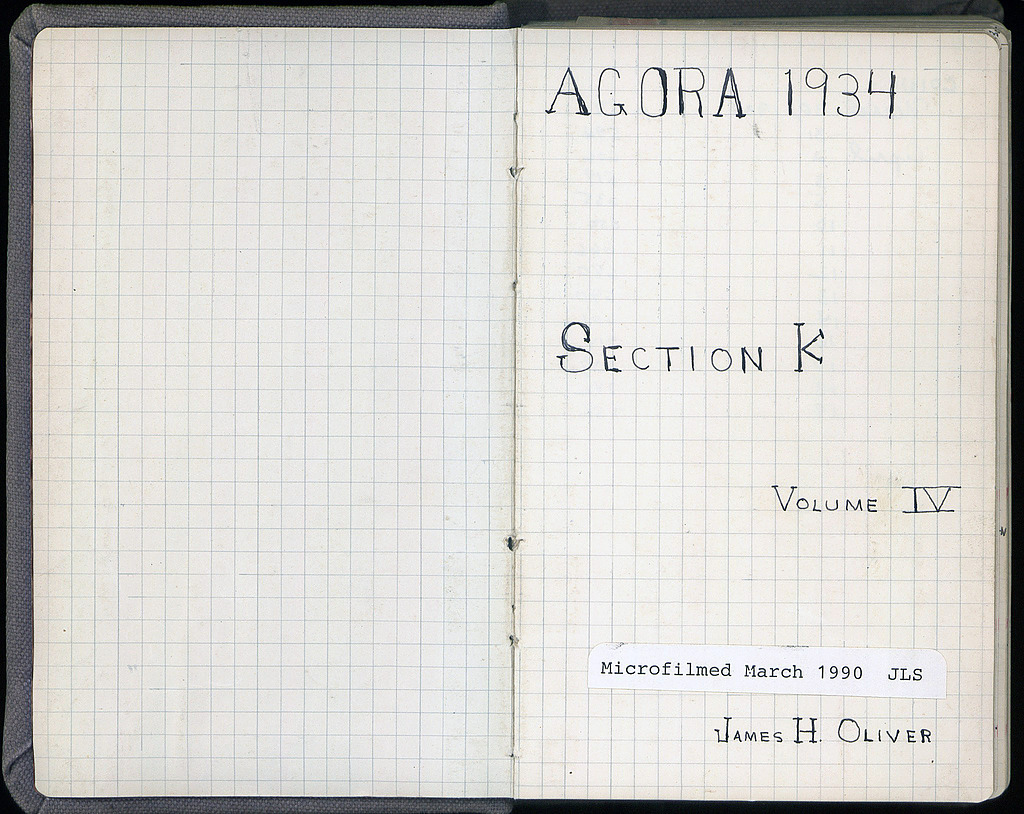 AGORA 1934
SECTION K
VOLUME IV
Microfilmed March 1990 JLS
JAMES H. OLIVER